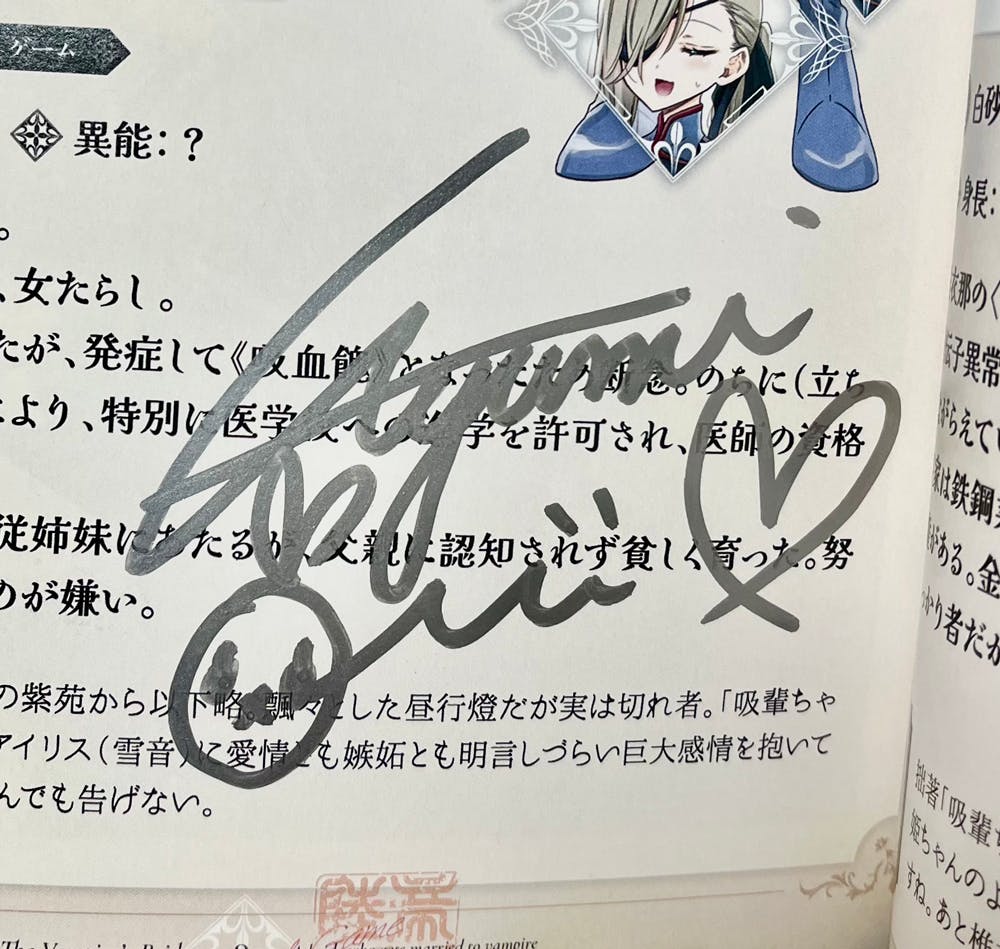 ゲーム
異能:?
。
、女たらし。
たが、発症して《吸血餽》となったため断念。のちに(立ち
により、特別に医学校への進学を許可され、医師の資格
従姉妹にあたるが、父親に認知されず貧しく育った。努
のが嫌い。
の紫苑から以下略。飄々とした昼行燈だが実は切れ者。「吸輩ちゃ
アイリス(雪音)に愛情とも嫉妬とも明言しづらい巨大感情を抱いて
んでも告げない。
The Vampire's Bride
married to vampire
白砂
身長:
衣那のく
伝子異常
がらえてい
家は鉄鋼
がある。金
かり者だが
拙著「吸輩
姫ちゃんのよ
すね。あと椎